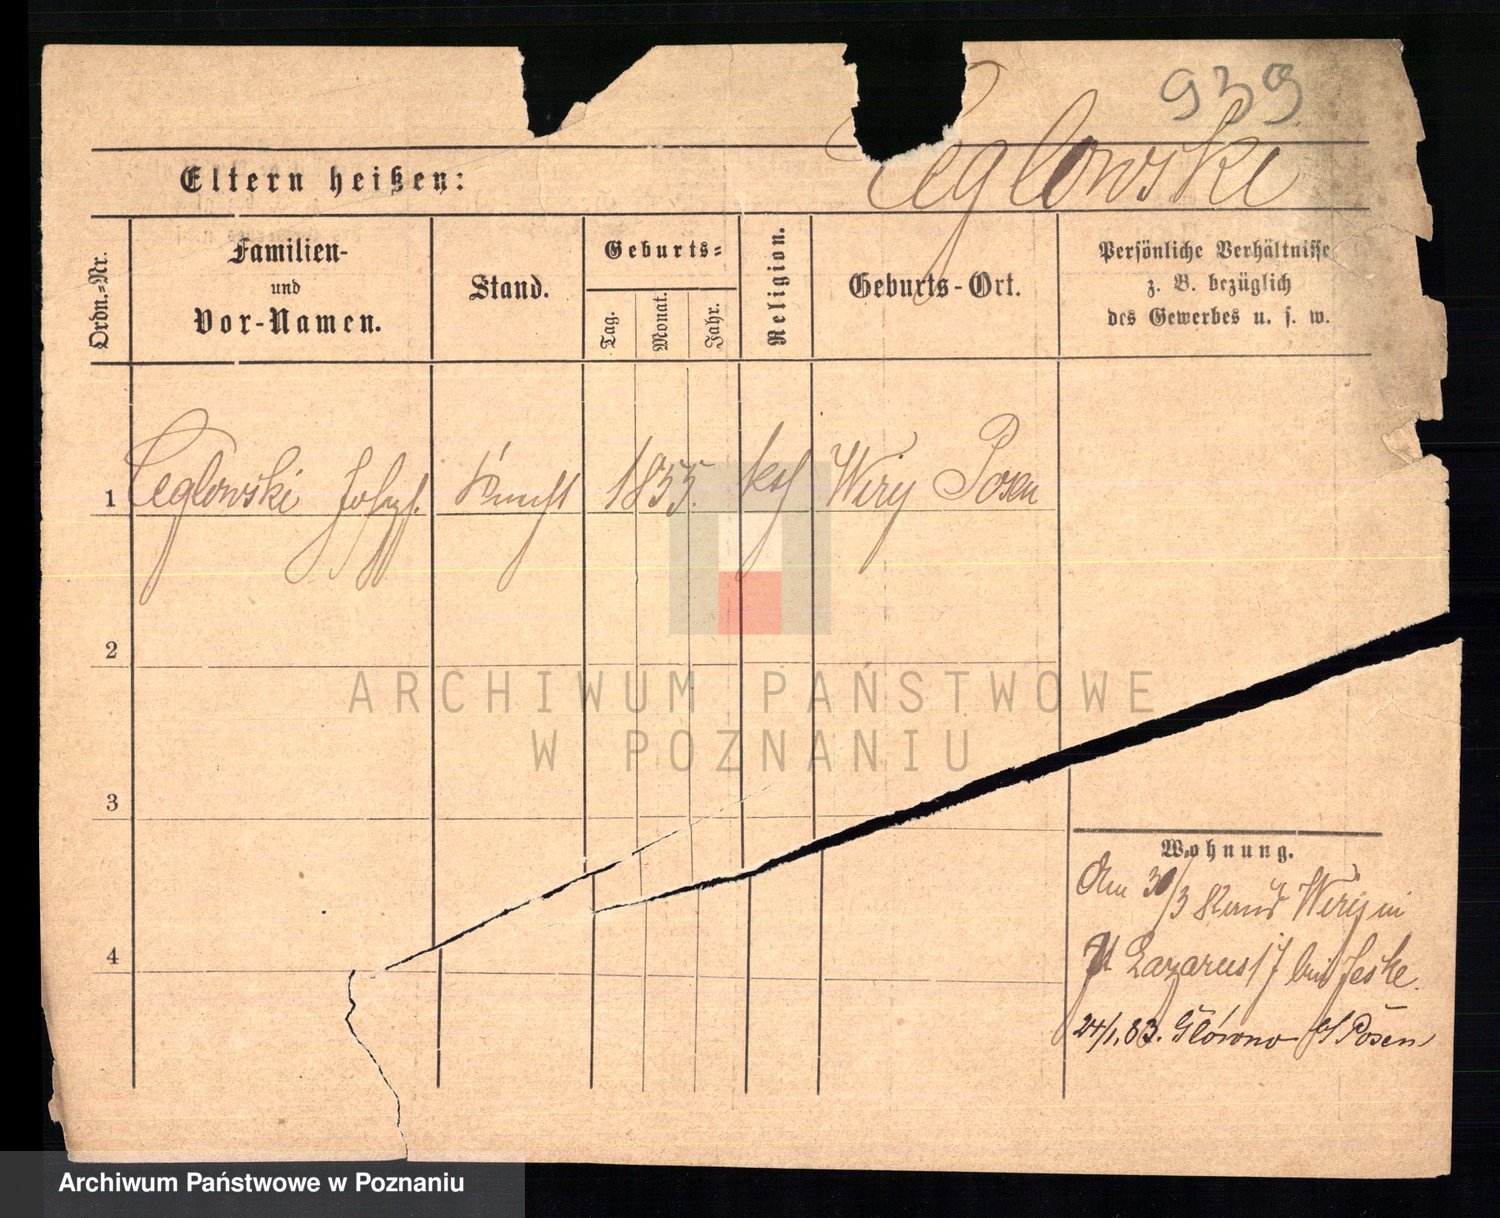 939
Ceglowski
Eltern heißen:
Ordn.-Nr.
Familien-
und
Vor-Namen.
Stand.
Geburts-
Tag.
Monat.
Jahr.
Religion.
Geburts-Ort.
Persönliche Verhältnisse
z. B. bezüglich
des Gewerbes u. s. w.
1 Ceglowski Josef. Knecht 1855. kath Wiry Posen
2
ARCHIWUM PAŃSTWOWE
W POZNANIU
3
4
Wohnung.
Am 30/3 Wiry in
St Lazarus 17 bei Jeske.
24/1.83. Glówno b/Posen
Archiwum Państwowe w Poznaniu